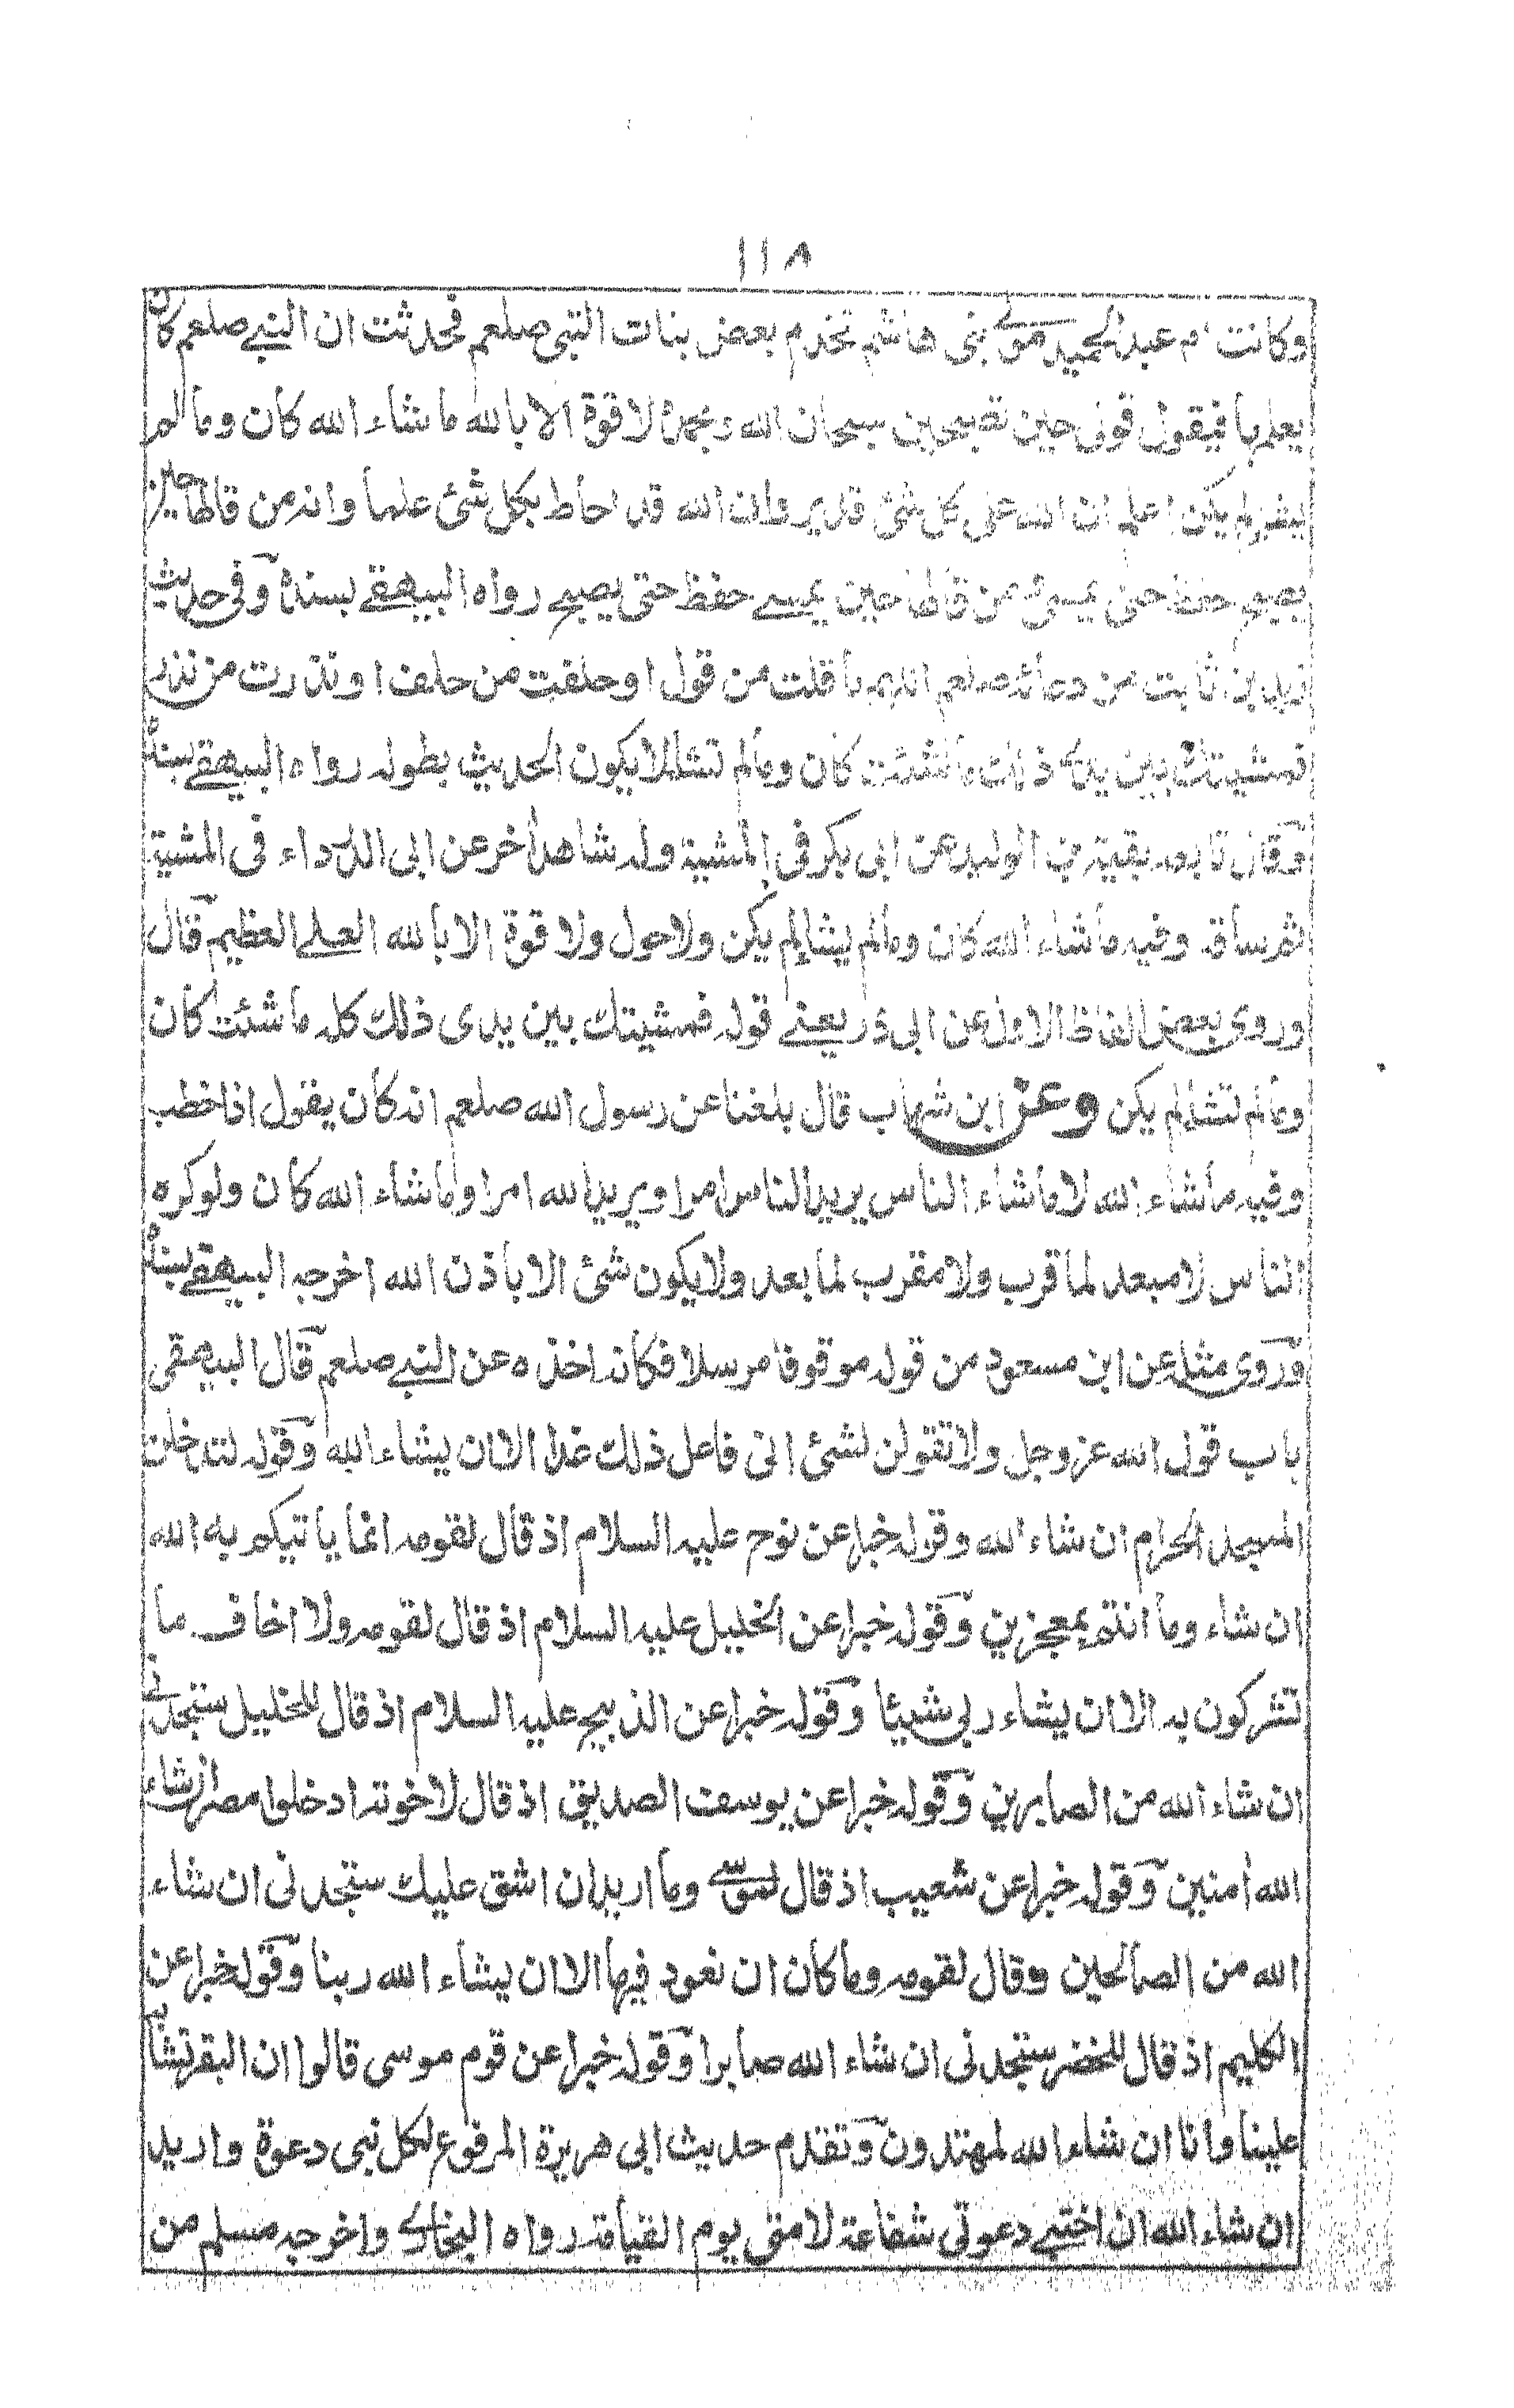 ١١٨
وكانت ام عبد الحميد مولى بنى هاشم تخدم بعض بنات النبى صلعم فحدثت ان النبي صلعم كان
يعلمها فيقول قولى حين تصبحين سبحان الله وبحمده لا قوة الا بالله ما شاء الله كان وما لم
يشأ لم يكن اعلم ان الله على كل شئ قدير وان الله قد احاط بكل شئ علما وانه من قالها حين
يصبح حفظ حتى يمسى ومن قالها حين يمسي حفظ حتى يصبح رواه البيهقي بسنده وفى حديث
زيد بن ثابت من دعائه صلعم اللهم ما قلت من قول او حلفت من حلف او نذرت من نذر
فمشيتك بين يدي ذلك ما شئت كان وما لم تشأ لا يكون الحديث بطوله رواه البيهقي بسنده
وقال تابعه بقية بن الوليد عن ابى بكر فى المشية وله شاهد اخر عن ابى الدرداء فى المشية
ثم ساقه وفيه ما شاء الله كان وما لم يشا لم يكن ولا حول ولا قوة الا بالله العلي العظيم قال
وروى بعض الفاظ الاول عن ابى ذر يعني قوله فمشيتك بين يدى ذلك كله ما شئت كان
وما لم تشا لم يكن وعن ابن شهاب قال بلغنا عن رسول الله صلعم انه كان يقول اذا خطب
وفيه ما شاء الله لا ما شاء الناس يريد الناس امرا ويريد الله امرا وما شاء الله كان ولو كره
الناس لا مبعد لما قرب ولا مقرب لما بعد ولا يكون شئ الا باذن الله اخرجه البيهقي بسنده
وروى مثله عن ابن مسعود من قوله موقوفا مرسلا فكانه اخذه عن النبي صلعم قال البيهقى
باب قول الله عز وجل ولا تقولن لشئ انى فاعل ذلك غدا الا ان يشاء الله وقوله لتدخلن
المسجد الحرام ان شاء الله وقوله خبرا عن نوح عليه السلام اذ قال لقومه انما ياتيكم به الله
ان شاء وما انتم بمعجزين وقوله خبرا عن الخليل عليه السلام اذ قال لقومه ولا اخاف ما
تشركون به الا ان يشاء ربى شيئا وقوله خبرا عن الذبيح عليه السلام اذ قال للخليل ستجدنى
ان شاء الله من الصابرين وقوله خبرا عن يوسف الصديق اذ قال لاخوته ادخلوا مصر ان شاء
الله امنين وقوله خبرا عن شعيب اذ قال لموسي وما اريد ان اشق عليك ستجدنى ان شاء
الله من الصالحين وقال لقومه وما كان ان نعود فيها الا ان يشاء الله ربنا وقوله خبرا عن
الكليم اذ قال للخضر ستجدنى ان شاء الله صابرا وقوله خبرا عن قوم موسى قالوا ان البقر تشابه
علينا وانا ان شاء الله لمهتدون وتقدم حديث ابى هريرة المرفوع لكل نبى دعوة واريد
ان شاء الله ان اختبي دعوتى شفاعة لامتى يوم القيامة رواه البخاري واخرجه مسلم من